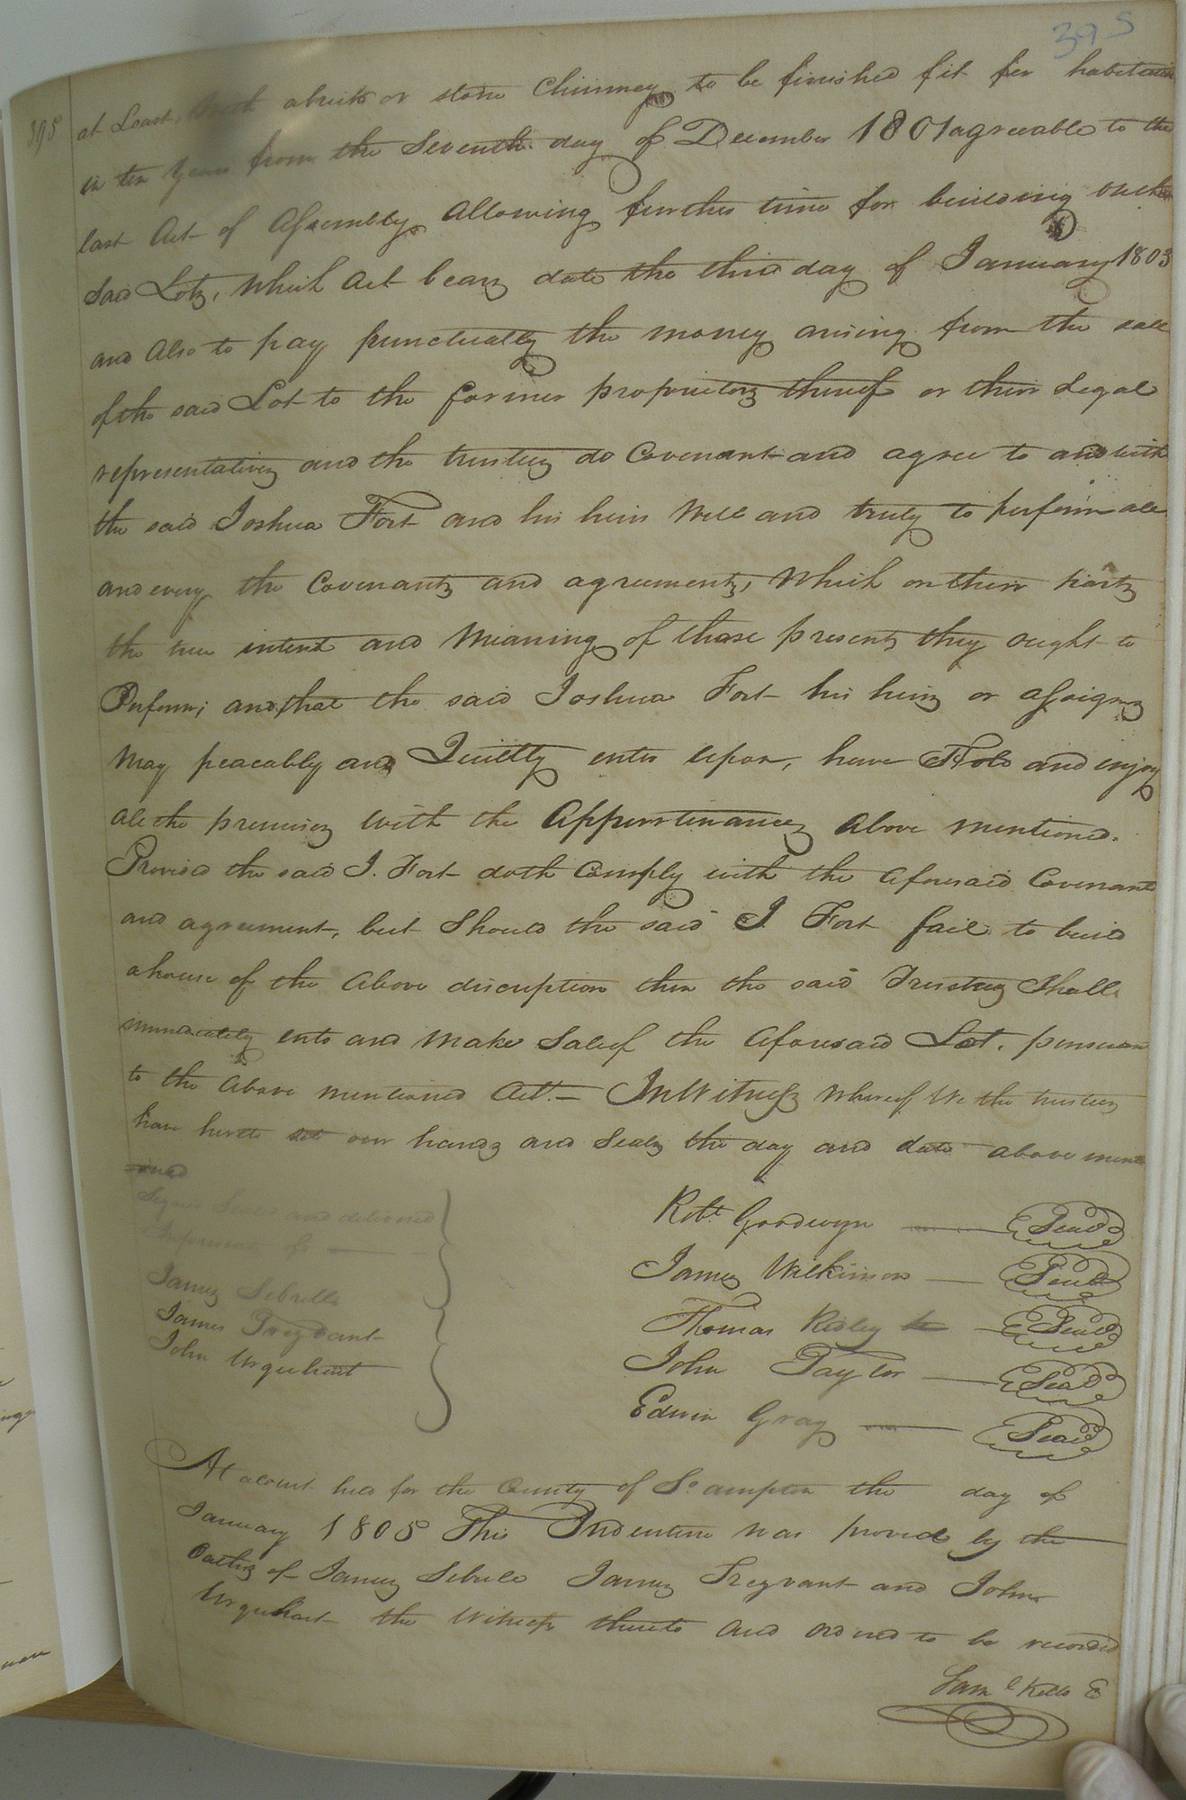 395
395
at Least, with abrick or stone Chimney to be finished fit for habitation
in ten Years from the Seventh day of December 1801 agreeable to the
last Act of Assembly Allowing further time for building on the
Said Lotz, Which Act bears date the third day of January 1803
and Also to pay punctually the money arising from the sale
of the said Lot to the former proprietorz thereof or their Legal
representativez and the trusteez do Covenant and agree to and with
the said Joshua Fort and his heirs Well and truly to perform all
and every the Covenantz and agreementz, Which on their partz
the true intent and Meaning of these presentz they ought to
Perform; and that the said Joshua Fort his heirz or assignz
May peacably and Quietly enter upon, have Hold and enjoy
all the premisez with the Appurtenancez Above mentioned.
Provided the said J. Fort doth Comply with the aforesaid Covenant
and agreement, but Should the said J. Fort fail to build
a house of the Above discription then the said Trusteez Shall
immediately enter and make Sale of the Aforesaid Lot. pursuan
to the Above mentioned Act. — In Witness Whereof We the trusteez
have hereto set our handz and Sealz the day and date above menti
=oned
Signed Sealed and delivered
In presence of —
Jamez Sebrelle
James Tregvant
John Urquhart
Robt. Goodwyn — Seal
Jamez Wilkinson — Seal
Thomas Ridley — Seal
John Taylor — Seal
Edwin Gray — Seal
At acourt held for the County of So.ampton the day of
January 1805 This Indenture was proved by the
Oathz of Jamez Sebrele Jamez Tregvant and John
Urquhart the Witness thereto and ordered to be recorded
Saml Kello C